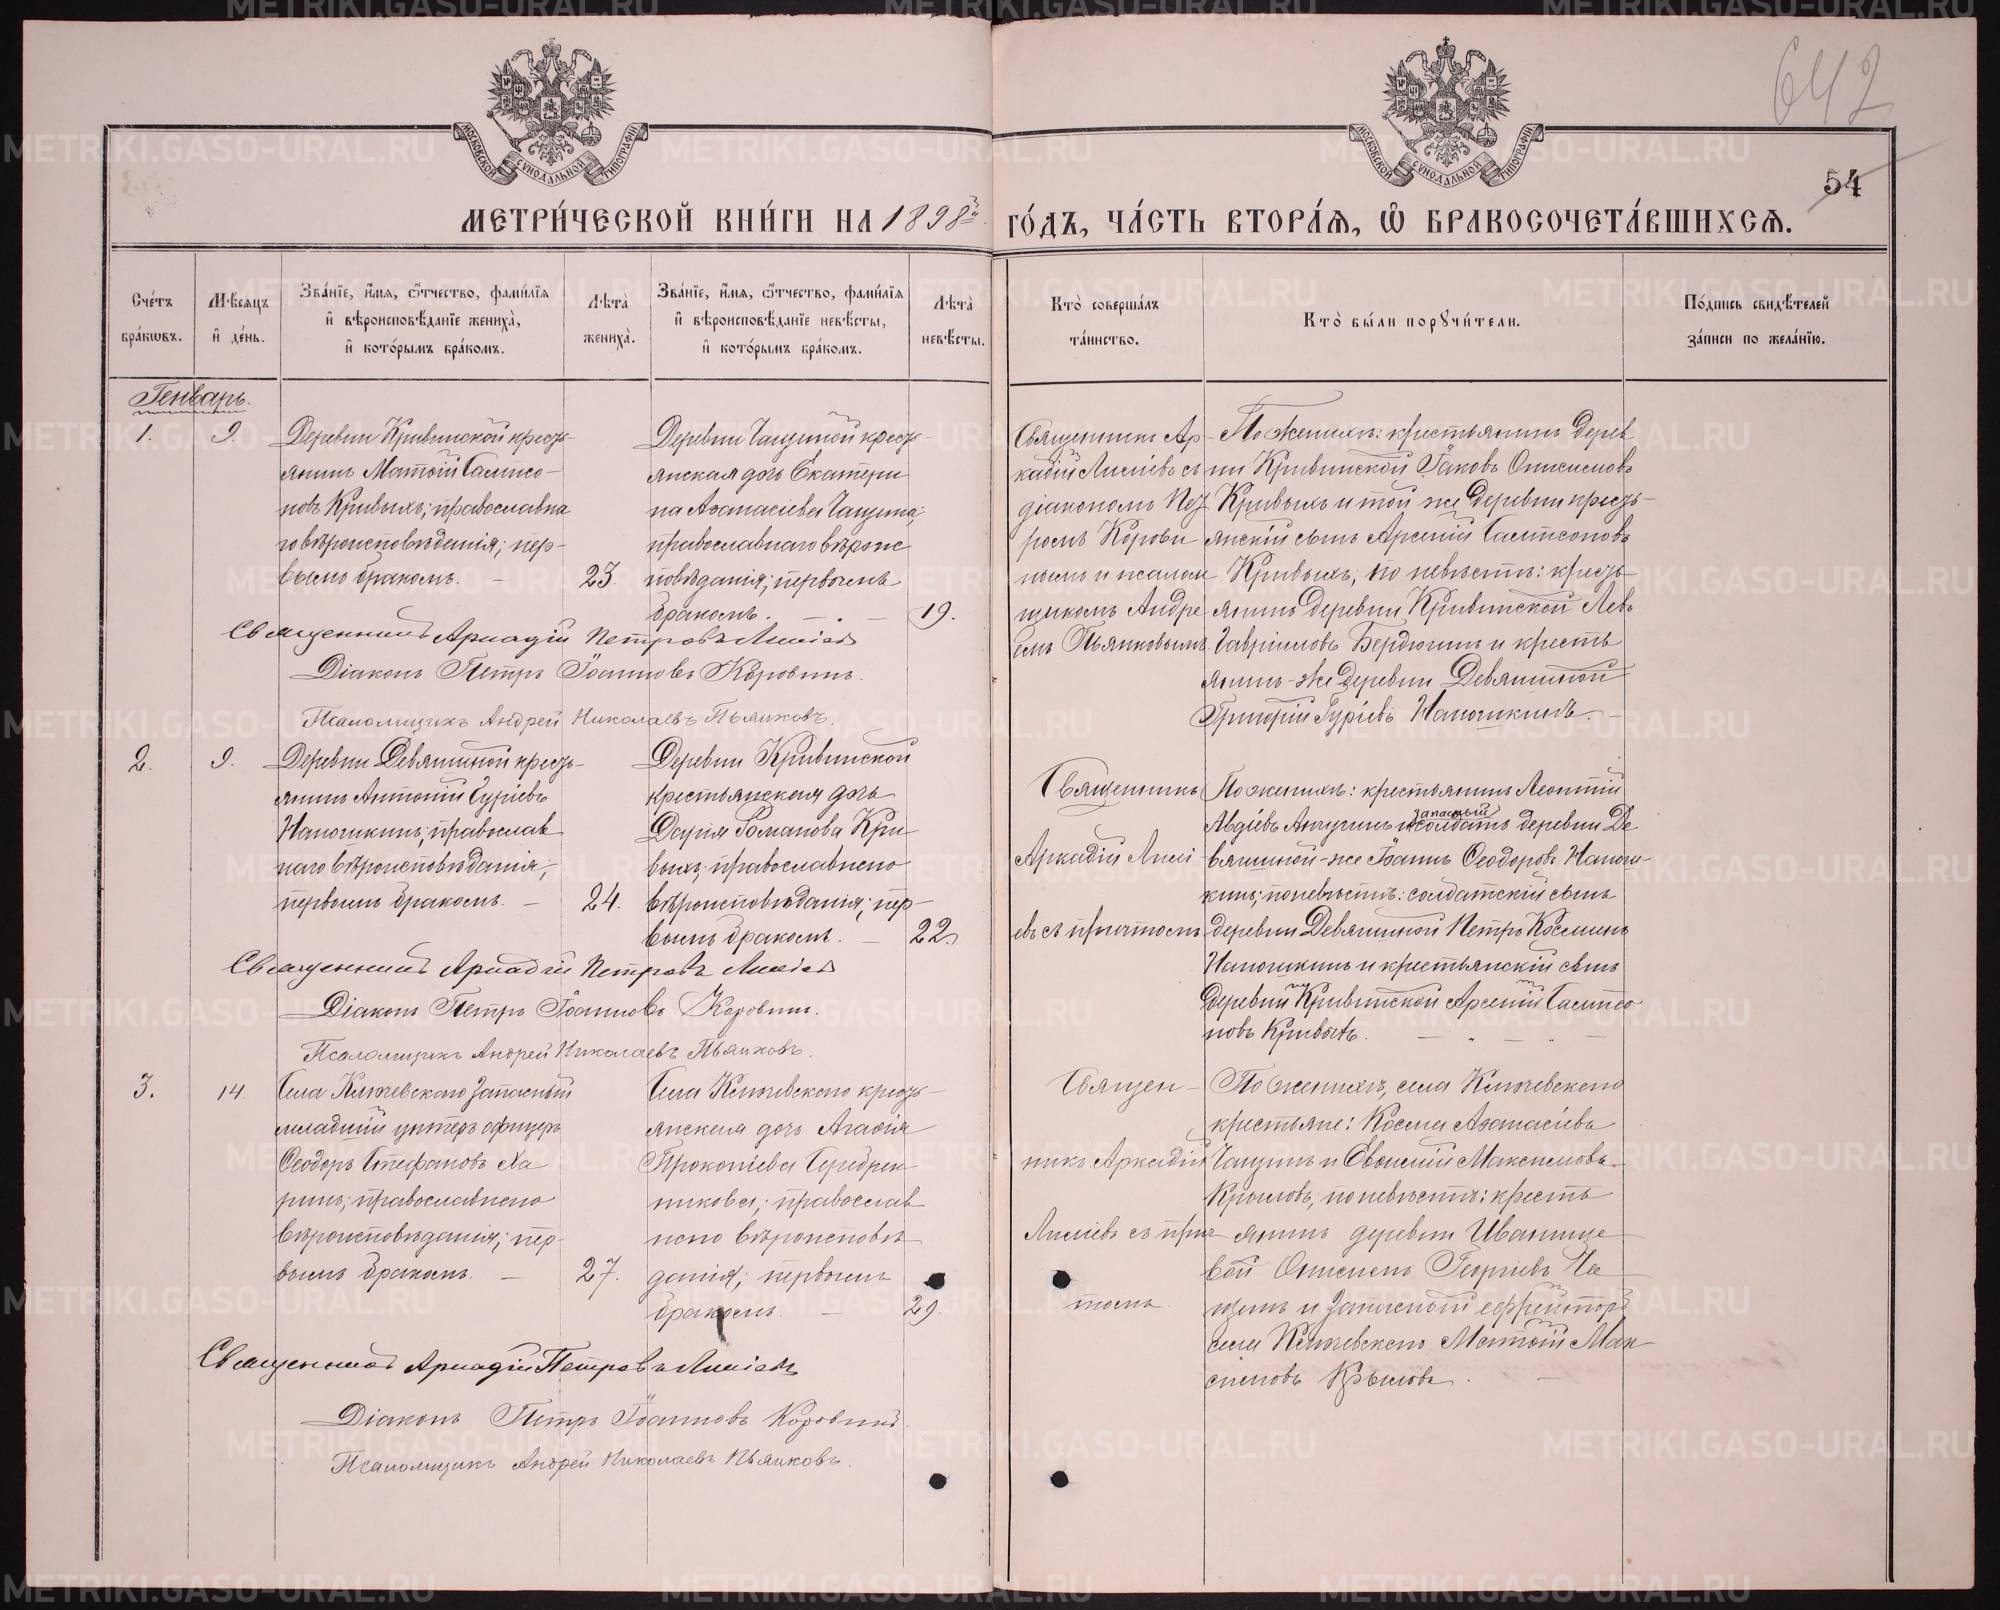 642
МОСКОВСКОЙ СѴНОДАЛЬНОЙ ТИПОГРАФІИ
МОСКОВСКОЙ СѴНОДАЛЬНОЙ ТИПОГРАФІИ
54
МЕТРИ́ЧЕСКОЙ КНИ́ГИ НА 1898й ГО́ДЪ, ЧА́СТЬ ВТОРА́Я, Ѽ БРАКОСОЧЕТА́ВШИХСЯ.
Сче́тъ бра́кѡвъ.
Мѣ́сяцъ и҆ де́нь.
Зва́нїе, и҆́мя, ѻ҆́тчество, фами́лїя
и҆ вѣроисповѣ́данїе жениха̀,
и҆ кото́рымъ бра́комъ.
Лѣта̀ жениха̀.
Зва́нїе, и҆́мя, ѻ҆́тчество, фами́лїя
и҆ вѣроисповѣ́данїе невѣ́сты,
и҆ кото́рымъ бра́комъ.
Лѣта̀ невѣ́сты.
Кто̀ соверша́лъ та́инство.
Кто̀ бы́ли порꙋчи́тели.
По́дпись свидѣ́телей за́писи по жела́нїю.
Генварь.
1.
9.
Деревни Кривинской кресть-
янинъ Матѳій Самсо-
новъ Кривыхъ; православна
го вѣроисповѣданія; пер-
вымъ бракомъ. –
23.
Деревни Чащиной кресть-
янская дочь Екатери
на Аѳанасіева Чащина;
православнаго вѣроис
повѣданія; первымъ
бракомъ.
19.
Священникъ Ар-
кадій Лисіевъ съ
діакономъ Пет
ромъ Корови
нымъ и псалом
щикомъ Андре
емъ Пьянковымъ.
По женихѣ: крестьянинъ дерев
ни Кривинской Іаковъ Онисимовъ
Кривыхъ и той же деревни кресть-
янскій сынъ Арсеній Самсоновъ
Кривыхъ; по невѣстѣ: кресть-
янинъ деревни Кривинской Левъ
Гавріиловъ Бердюгинъ и кресть
янинъ-же деревни Девяшиной
Григорій Гуріевъ Напочкинъ. –
Священникъ Аркадій Петровъ Лисіевъ
Діаконъ Петръ Іоанновъ Коровинъ.
Псаломщикъ Андрей Николаевъ Пьянковъ.
2.
9.
Деревни Девяшиной кресть-
янинъ Антоній Гуріевъ
Напочкинъ; православ
наго вѣроисповѣданія;
первымъ бракомъ. –
24.
Деревни Кривинской
крестьянская дочь
Дарія Романова Кри
выхъ; православнаго
вѣроисповѣданія; пер-
вымъ бракомъ. –
22.
Священникъ
Аркадій Лисі-
евъ съ причтомъ
По женихѣ: крестьянинъ Леонтій
Авдіевъ Анчугинъ и запасный солдатъ деревни Де
вяшиной-же Іоаннъ Ѳеодоровъ Напоч-
кинъ; по невѣстѣ: солдатскій сынъ
деревни Девяшиной Петръ Косминъ
Напочкинъ и крестьянскій сынъ
деревни Кривинской Арсеній Самсо
новъ Кривыхъ.
Священникъ Аркадій Петровъ Лисіевъ
Діаконъ Петръ Іоанновъ Коровинъ.
Псаломщикъ Андрей Николаевъ Пьянковъ.
3.
14.
Села Ключевского запасный
младшій унтеръ офицеръ
Ѳеодоръ Стефановъ Ха
ринъ; православнаго
вѣроисповѣданія; пер-
вымъ бракомъ. –
27.
Села Ключевского кресть-
янская дочь Агаѳія
Прокопіева Серебрен-
никова; православ
наго вѣроисповѣ
данія; первымъ
бракомъ. –
29.
Священ-
никъ Аркадій
Лисіевъ съ прич
томъ.
По женихѣ, села Ключевского
крестьяне: Косма Аѳанасіевъ
Чащинъ и Евѳимій Максимовъ
Крыловъ; по невѣстѣ: кресть
янинъ деревни Иванище
вой Онисимъ Георгіевъ Ча
щинъ и запасный ефрейторъ
села Ключевского Матѳій Мак
симовъ Крыловъ.
Священникъ Аркадій Петровъ Лисіевъ
Діаконъ Петръ Іоанновъ Коровинъ.
Псаломщикъ Андрей Николаевъ Пьянковъ.
METRIKI.GASO-URAL.RU